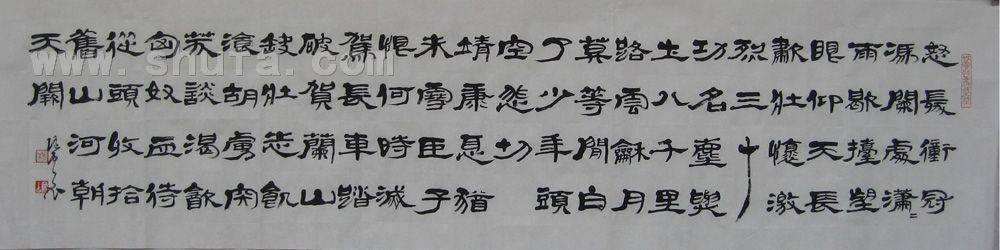 怒髮衝冠
馮闌處瀟=
雨歇擡望
眼仰天長
歗壯懷激
烈三十
功名塵與
土八千里
路雲龢月
莫等閒白
了少年頭
空悲切
靖康恥猶
未雪臣子
恨何時滅
駕長車踏
破賀蘭山
缺壯志飢
飡胡虜肉
笑談渴飲
匈奴血待
從頭收拾
舊山河朝
天闕
www.shufa.com